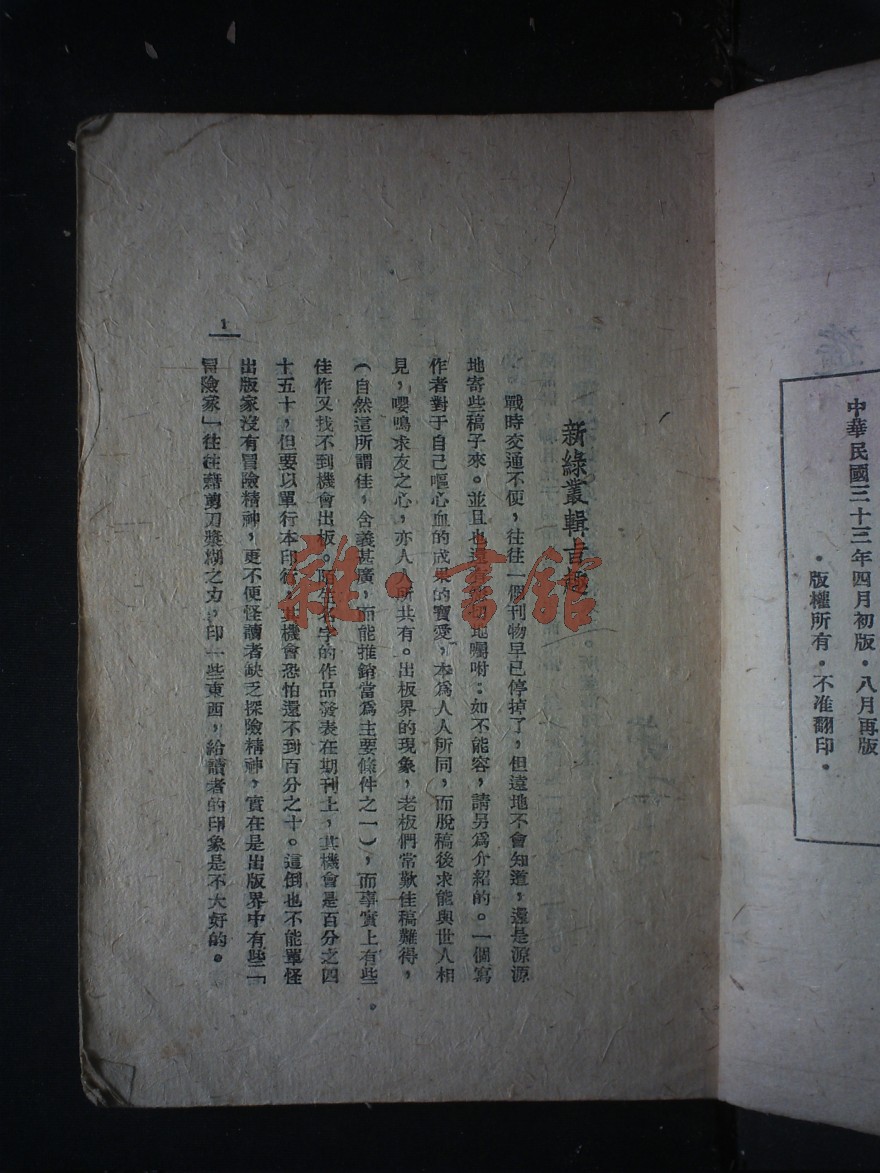 中華民國三十三年四月初版·八月再版
·版權所有·不准翻印·
新綠叢輯旨趣
戰時交通不便,往往一個刊物早已停掉了,但遠地不會知道,還是源源
地寄些稿子來。並且也還有懇切地囑咐:如不能容,請另爲介紹的。一個寫
作者對于自己嘔心血的成果的寶愛,本爲人人所同,而脫稿後求能與世人相
見,嚶鳴求友之心,亦人人所共有。出板界的現象,老板們常歎佳稿難得,
(自然這所謂佳,含義甚廣,而能推銷當爲主要條件之一),而事實上有些。
佳作又找不到機會出板。陌生名字的作品發表在期刊上,其機會是百分之四
十五十,但要以單行本印行,其機會恐怕還不到百分之十。這倒也不能單怪
出版家沒有冒險精神,更不便怪讀者缺乏探險精神,實在是出版界中有些「
冒險家」往往藉剪刀漿糊之力,印一些東西,給讀者的印象是不大好的。
1
雜·書館